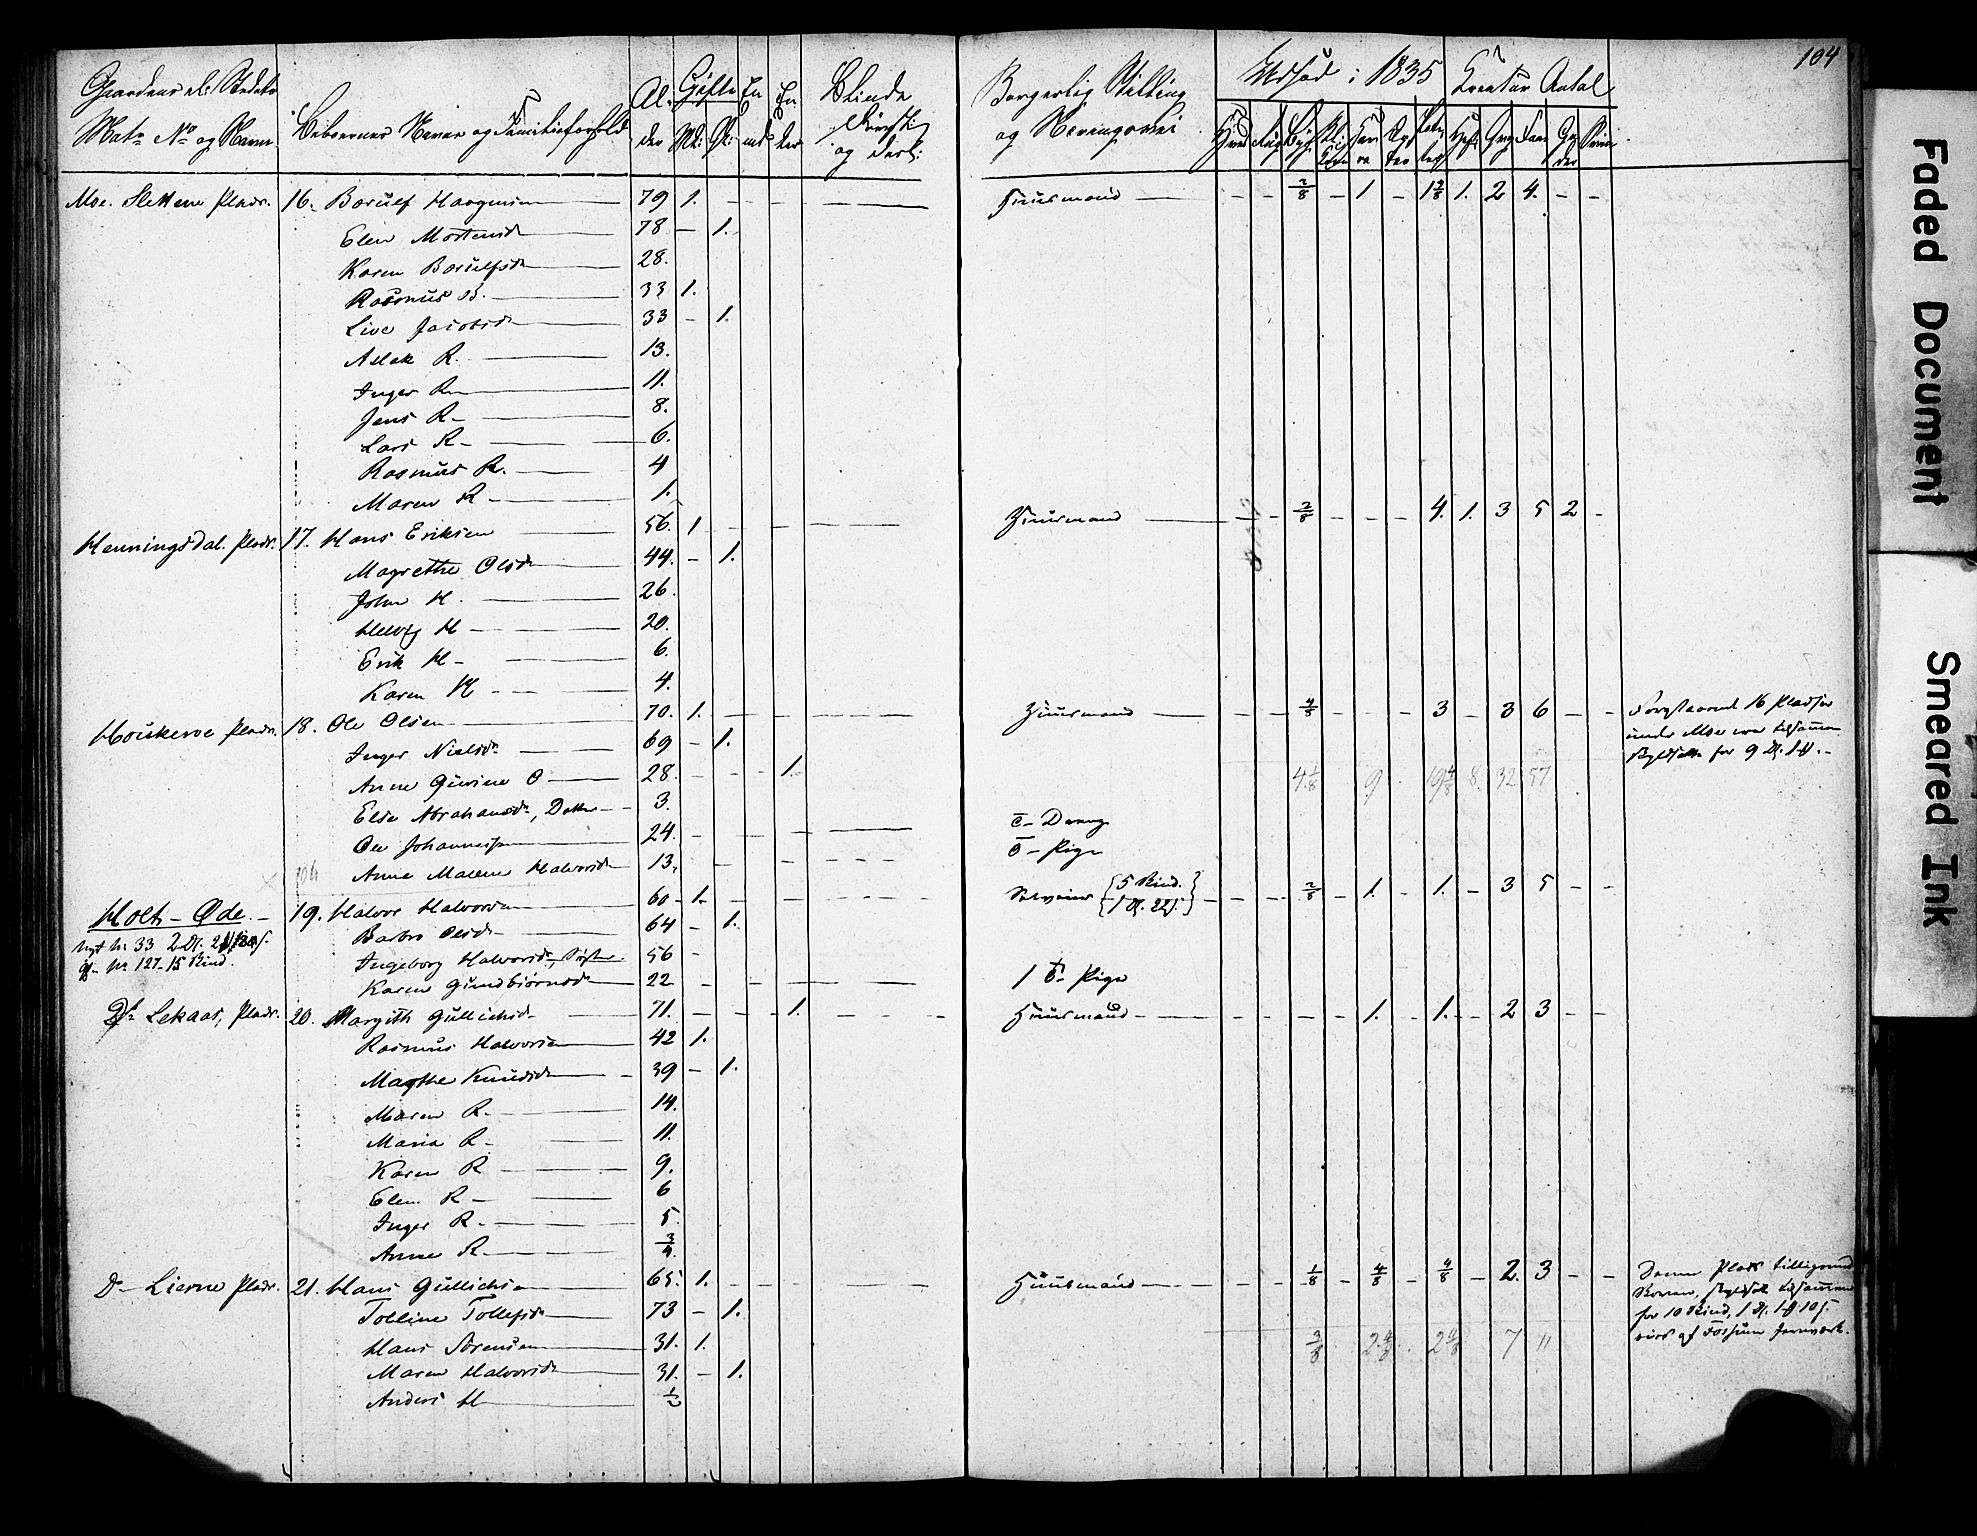 104
Gaardens el: Stedets
Matr No og Navn
Beboernes Navne og Familieforhold
Al-
der
Gifte
Mk: Qk:
En
ke
Blinde
og
Borgerlig Stilling
og Næringsvei
Udsæd i 1835
Creatur Antal
Moe. Slettene Plads. 16. Borulf Haagensen 79 1. Huusmand 2/8 1 1 4/8 1. 2 4.
Elen Mortensd 78 1.
Karen Borulfsd 28.
Rasmus B. 33 1.
Live Jacobsd 33 1.
Aslak R. 13.
Inger R 11.
Jens R 8.
Lars R 6.
Rasmus R. 4
Maren R 1.
Henningsdal. Plads. 17. Hans Eriksen 56. 1 Huusmand 3/8 4. 1. 3 5 2
Magrethe Olsd 44. 1.
John H. 26.
Helvig H 20.
Erik H 6.
Karen H 4.
Plads. 18. Ole Olsen 70. 1. Huusmand 4/8 3 3 6
Foregstaaend 16 Pladser
under Moe ere tilsammen
for 9
Inger Nielsd 69 1.
Anne Gurine O 28. 1.
4 1/8 9 19 4/8 8. 32 57
Else Abrahamsd, Datter 3.
Ole Johannesen 24. T- Dreng
Anne Malene Halvorsd 13. T- Pige
Holt - Øde. 19. Halvor Halvorsen 60 1. Selveier {5 Skind. 2/8 1. 1. 3 5
Barbro Olsd 64 1.
Nyt Nr 33
Nr 127-15 Skind.
Ingeborg Halvorsd, Søster 56
Karen Gundbiørnsd 22 1 T- Pige
Do Lekaas, Plads. 20. Margith Gullichsd 71. 1. Huusmand 1. 1. 2 3
Rasmus Halvorsen 42 1.
Magthe Knudsd 39 1.
Maren R. 14.
Maria R 11.
Karen R 9.
Elen R 6
Inger R. 5
Anne R 3/4
Do Lierne Plads. 21. Hans Gullichsen 65. 1. Huusmand 1/8 4/8 4/8 2. 3
Denne Plads tilligemed
tilsammen
for 10 Skind,
Fossum Jernværk.
Tolline Tollefsd 73 1.
Hans Sørensen 31. 1.
3/8 2 4/8 2 4/8 7 11
Maren Halvorsd 31. 1.
Anders H 1/2
Faded Document
Smeared Ink